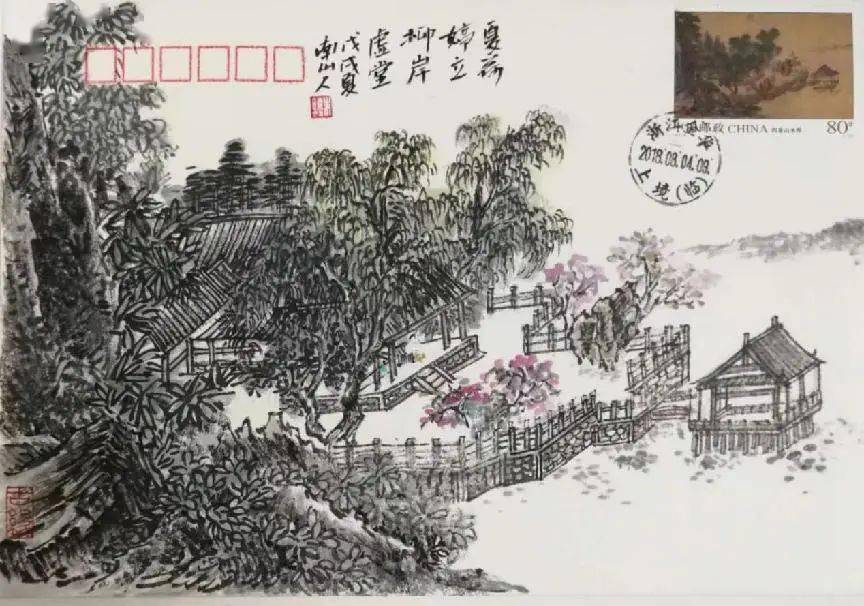 夏荷
婷立
柳岸
虚堂
戊戌夏
南山人
邮政 CHINA 四景山水图
80分
浙江
2018.08.04.09
(临)